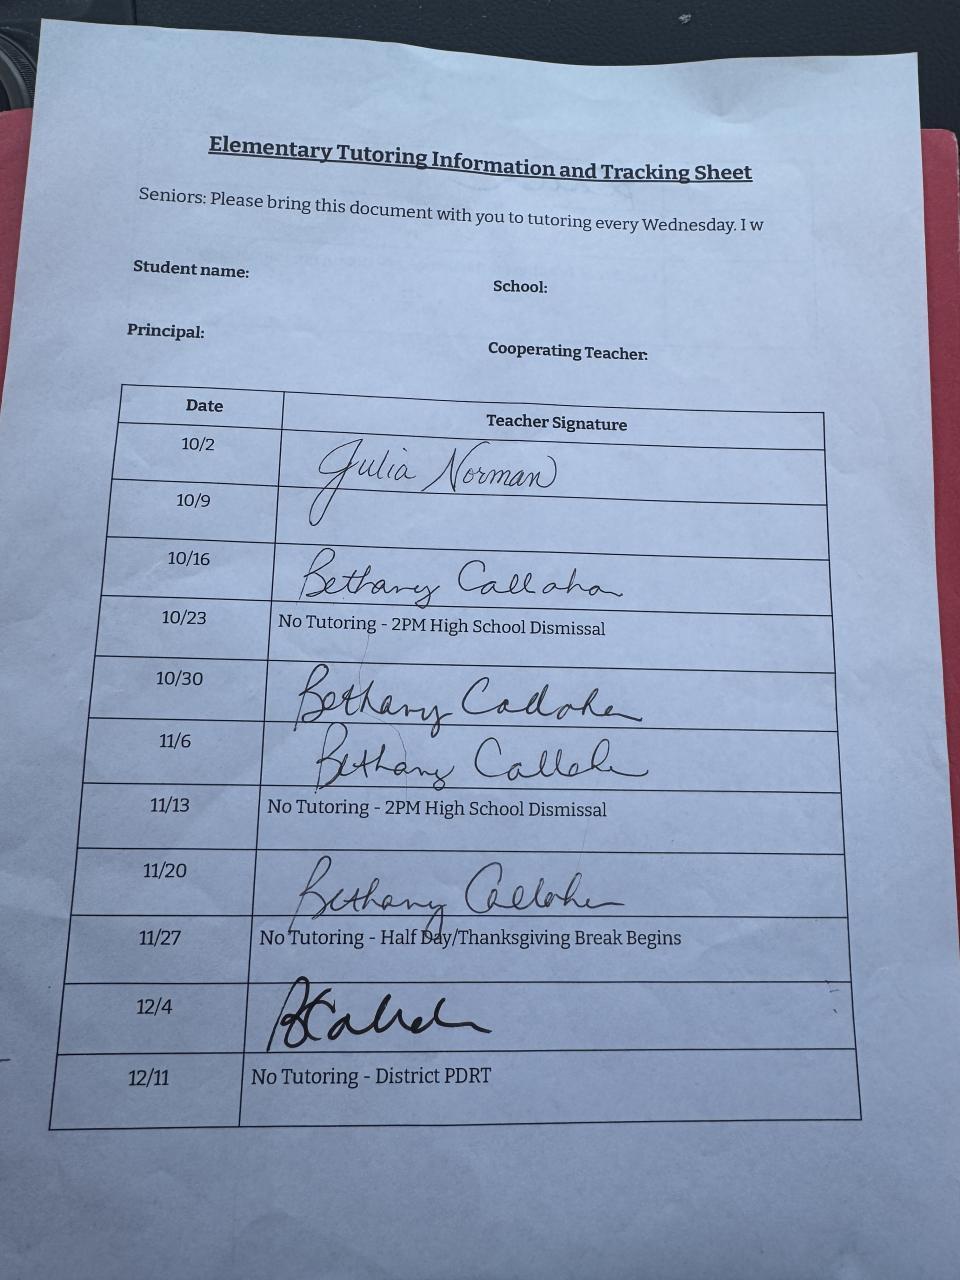 Elementary Tutoring Information and Tracking Sheet
Seniors: Please bring this document with you to tutoring every Wednesday. I w
Student name:
School:
Principal:
Cooperating Teacher:
Date Teacher Signature
10/2 Julia Norman
10/9
10/16 Bethany Callahan
10/23 No Tutoring - 2PM High School Dismissal
10/30 Bethany Callahan
11/6 Bethany Callahan
11/13 No Tutoring - 2PM High School Dismissal
11/20 Bethany Callahan
11/27 No Tutoring - Half Day/Thanksgiving Break Begins
12/4
12/11 No Tutoring - District PDRT